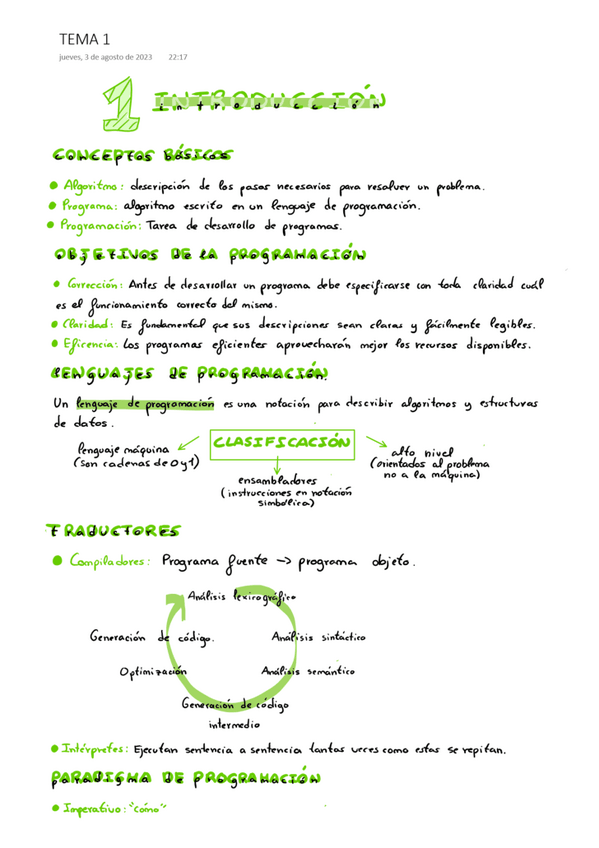 TEMA 1
jueves, 3 de agosto de 2023 22:17
1 INTRODUCCIÓN
introducción
CONCEPTOS BÁSICOS
Algoritmo: descripción de los pasos necesarios para resolver un problema.
Programa: algoritmo escrito en un lenguaje de programación.
Programación: Tarea de desarrollo de programas.
OBJETIVOS DE LA PROGRAMACIÓN
Corrección: Antes de desarrollar un programa debe especificarse con toda claridad cuál
es el funcionamiento correcto del mismo.
Claridad: Es fundamental que sus descripciones sean claras y fácilmente legibles.
Eficencia: Los programas eficientes aprovecharán mejor los recursos disponibles.
LENGUAJES DE PROGRAMACIÓN.
Un lenguaje de programación es una notación para describir algoritmos y estructuras
de datos.
CLASIFICACIÓN
lenguaje máquina
(son cadenas de 0 y 1)
ensambladores
(instrucciones en notación
simbólica)
alto nivel
(orientados al problema
no a la máquina)
TRADUCTORES
Compiladores: Programa fuente -> programa objeto.
Análisis lexicográfico
Análisis sintáctico
Análisis semántico
Generación de código
intermedio
Optimización
Generación de código.
Intérpretes: Ejecutan sentencia a sentencia tantas veces como estas se repitan.
PARADIGMA DE PROGRAMACIÓN
Imperativo: "cómo"